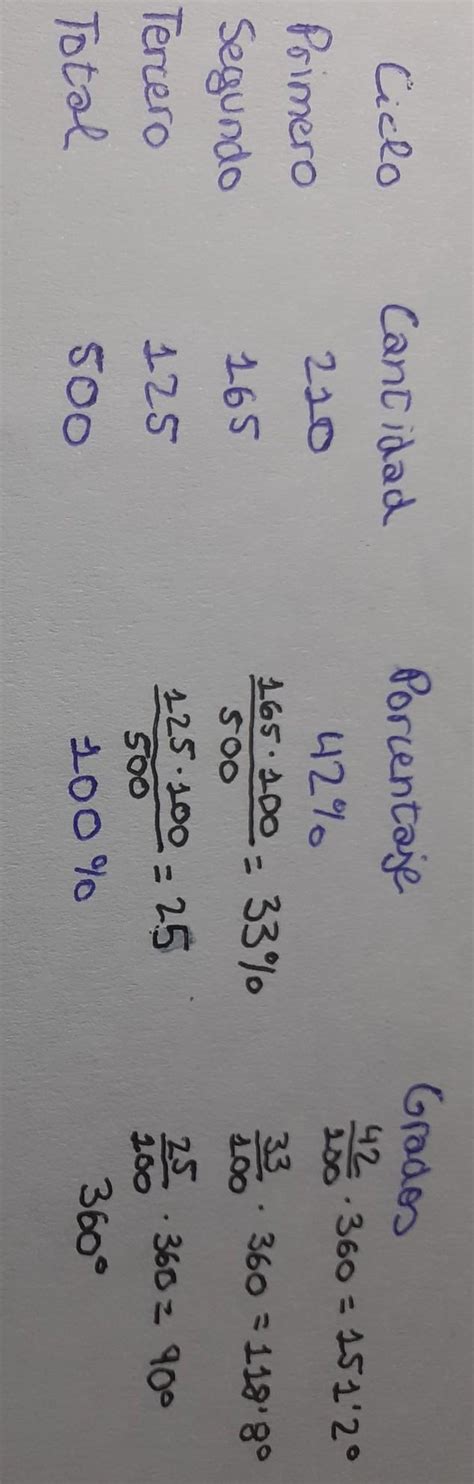 Ciclo Cantidad Porcentaje Grados
Primero 210 42% 42/100 · 360 = 151'2°
Segundo 165 165·100/500 = 33% 33/100 · 360 = 118'8°
Tercero 125 125·100/500 = 25 25/100 · 360 = 90°
Total 500 100% 360°